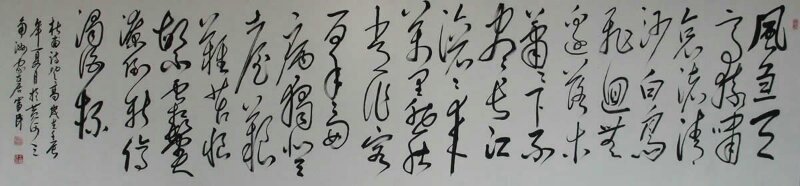 風急天
高猿嘯
哀渚清
沙白鳥
飛迴無
邊落木
蕭〻下不
盡長江
滾〻來
萬里悲秋
常作客
百年多
病獨登
臺艱
難苦恨
繁霜鬢
潦倒新停
濁酒杯
杜甫詩登高歲
年夏月於黃河三